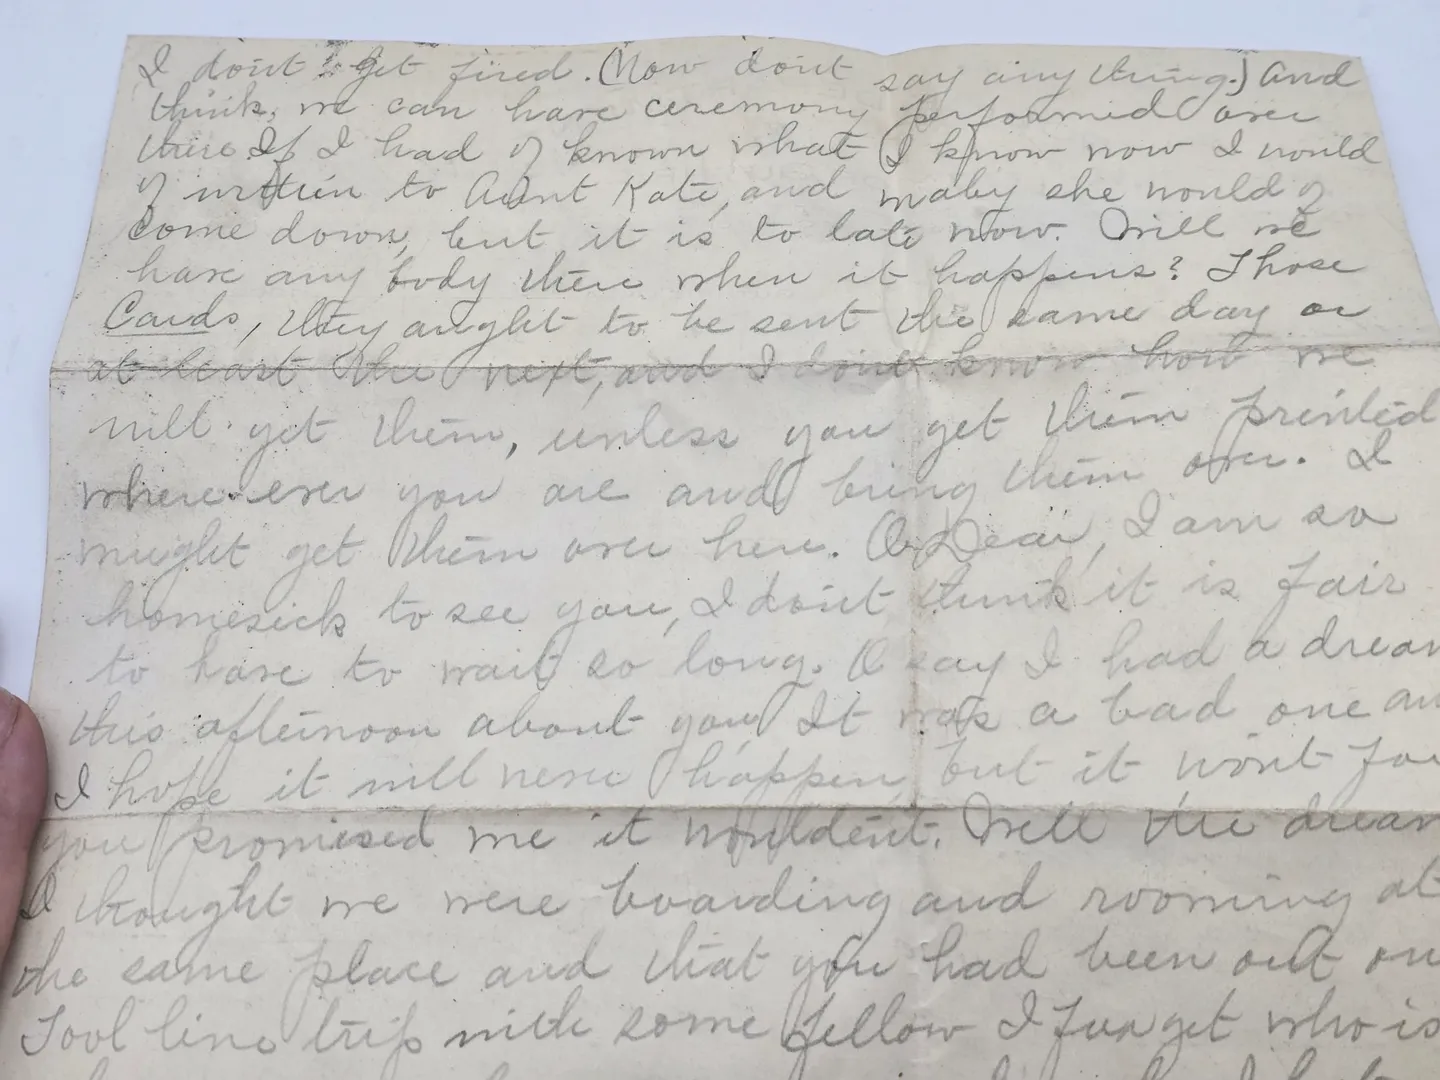 I don't get fired. (Now don't say any thing.) And
think, we can have ceremony performed over
there If I had of known what I know now I would
of written to Aunt Kate, and maby she would of
come down, but it is to late now. Will we
have any body there when it happens? Those
Cards, they aught to be sent the same day or
at least the next, and I don't know how we
will get them, unless you get them printed
where ever you are and bring them over. I
might get them over here. O Dear, I am so
homesick to see you, I don't think it is fair
to have to wait so long. O say I had a dream
this afternoon about you It was a bad one an
I hope it will never happen, but it won't for
you promised me it wouldent. Well the dream
I thought we were boarding and rooming at
the same place and that you had been out on
Tool line trip with some fellow I furget who is